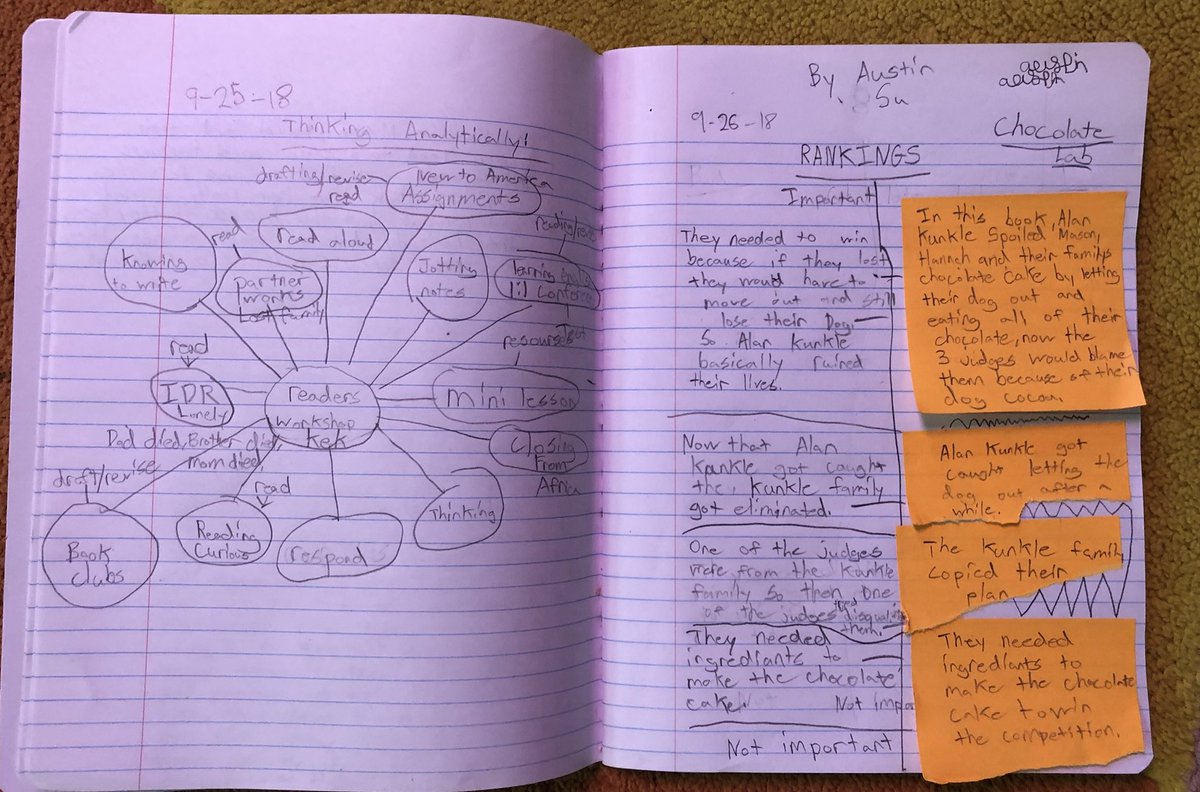 9-25-18
Thinking Analytically!
drafting/revise
read
New to America
Assignments
read
read aloud
Knowing
to write
partner
works
Lost family
Jotting
notes
reading/
1:1 Conference
resourses
read
IDR
Lonely
readers
workshop
kek
mini lesson
Closing
From
Africa
Dad died, Brother died
mom died
draft/revise
read
Thinking
Book
clubs
Reading
Curious
respond
By Austin
Su
9-26-18
Chocolate
Lab
RANKINGS
Important
They needed to win
because if they lost
they would have to
move out and still
lose their Dog.
So Alan Kunkle
basically ruined
their lives.
Now that Alan
Kunkle got caught
the Kunkle family
got eliminated.
One of the judges
were from the Kunkle
family so then one
of the judges
them.
They needed
ingrediants to
make the chocolate
cake.
Not impo
Not important
In this book, Alan
Kunkle Spoiled Mason,
Hannah and their familys
chocolate cake by letting
their dog out and
eating all of their
chocolate, now the
3 judges would blame
them because of their
dog cocoa.
Alan Kunkle got
caught letting the
dog out after a
while.
The Kunkle family
copied their
plan
They needed
ingrediants to
make the chocolate
cake to win
the competition.